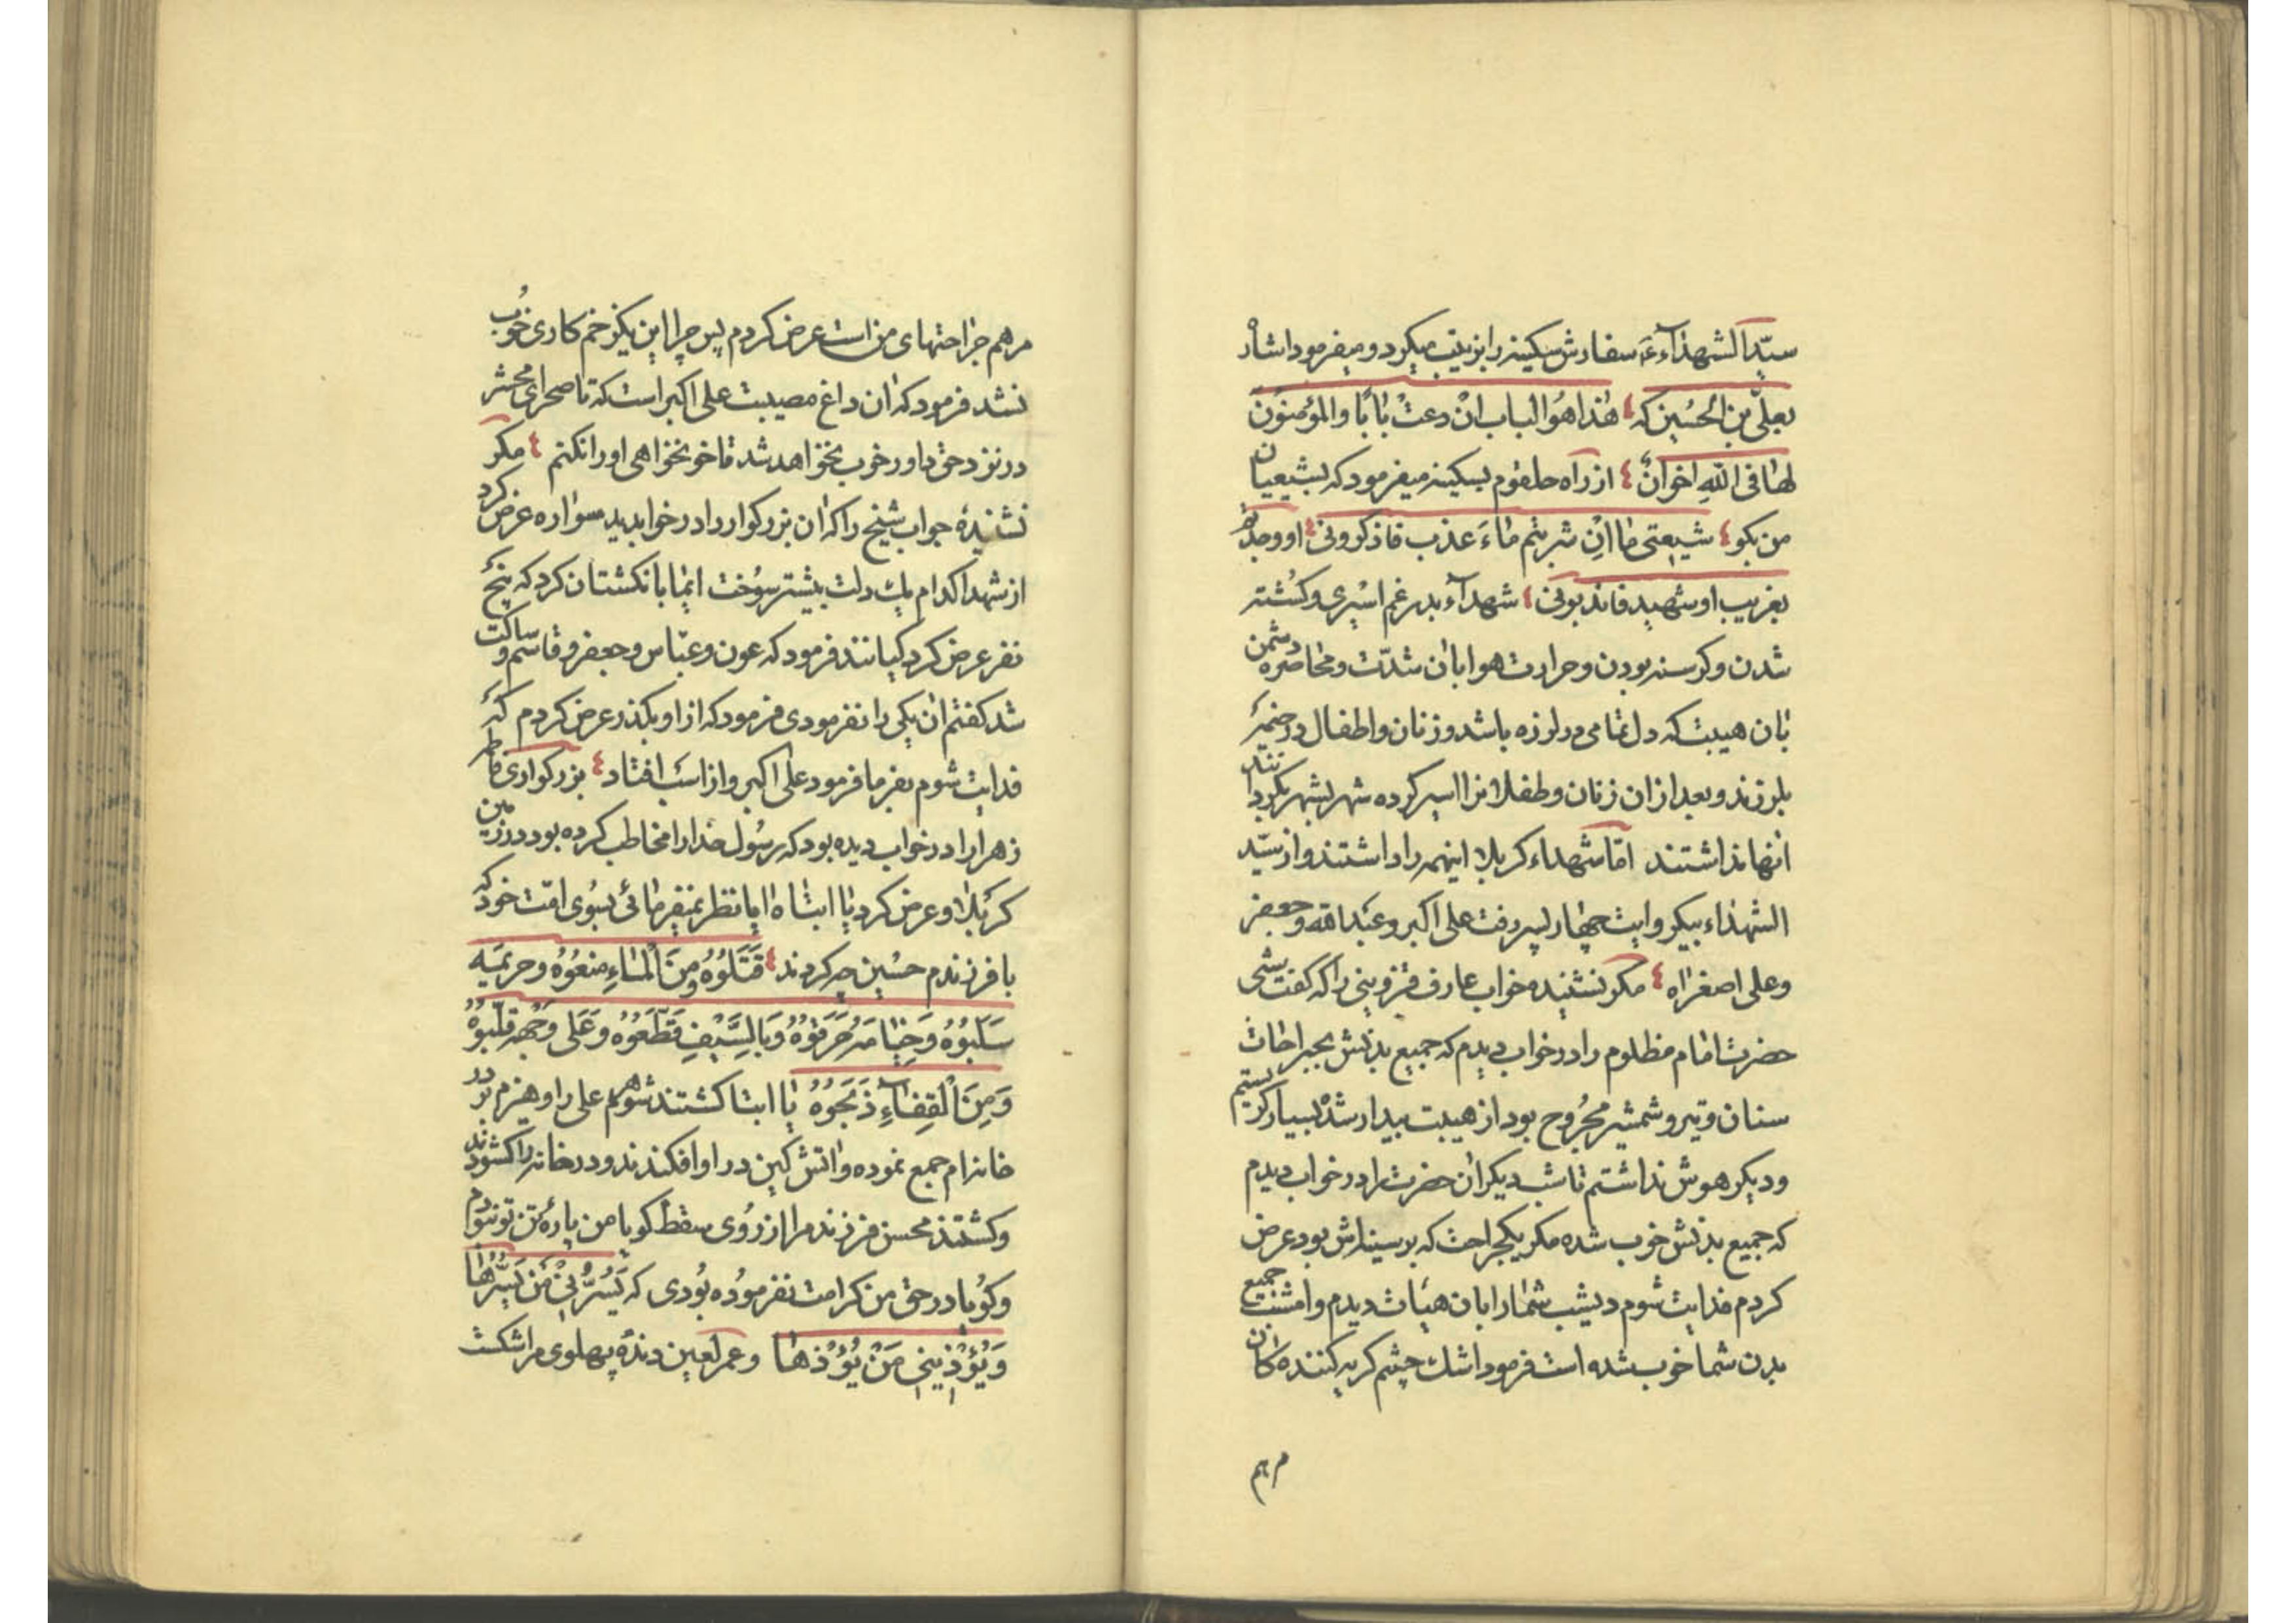 سیّد الشهداء ع سفارش سکینه را بزینب میکرد و میفرمود اشاره
بعلیّ بن الحسین که هٰذا هُوَ الباب انْ دعتْ بابًا والمؤمنون
لها فی اللهِ اخوانٌ از راه حلقوم بسکینه میفرمود که بشیعیان
من بکو شیعتی ما انِ شربتم ماءَ عذب فاذکرونی او
بغریب او شهید فاندبونی شهدآء بدر غم اسیری و کشته
شدن و کرسنه بودن و حرارت هوا بان شدّت و محاصره دشمن
بان هیبت که دل تمامی در لرزه باشد و زنان و اطفال در خیمه
بلرزند و بعد از ان زنان و طفلانرا اسیر کرده شهر بشهر بکردانند
انها نداشتند امّا شهداء کربلا اینهمه را داشتند و از سیّد
الشهداء بیکروایت چهار پسر رفت علی اکبر و عبدالله و جعفر
و علی اصغر اه مکر نشنیده خواب عارف قزوینی را که کفت شبی
حضرت امام مظلوم را در خواب دیدم که جمیع بدنش بجراحات
سنان و تیر و شمشیر مجروح بود از هیبت بیدار شده بسیار کریستم
و دیکر هوش نداشتم تا شب دیکر ان حضرت را در خواب دیدم
که جمیع بدنش خوب شده مکر یکجراحت که بر سینه‌اش بود عرض
کردم فدایت شوم دیشب شما را بان هیأت دیدم و امشب جمیع
بدن شما خوب شده است فرمود اشک چشم کریه کننده کان
مرهم
مرهم جراحتهای من است عرض کردم پس چرا این یکزخم کاری خوب
نشد فرمود که ان داغ مصیبت علی اکبر است که تا صحرای محشر
در نزد حق داور خوب نخواهد شد تا خونخواهی او را نکنم مکر
نشنیدهٔ جواب شیخ را که ان بزرکوار را در خواب دید سواره عرض کرد
از شهدا کدام یک دلت بیشتر سوخت ایما با نکشتان کرد که پنج
نفر عرض کرد کیانند فرمود که عون و عبّاس و جعفر و قاسم و ساکت
شد کفتم ان یکی را نفرمودی فرمود که از او بکذر عرض کردم که
فدایت شوم بفرما فرمود علی اکبر و از اسب افتاد بزرکواری فاطمه
زهرا را در خواب دیده بود که رسول خدا را مخاطب کرده بود در زمین
کربلا و عرض کرد یا ابتاه ایا نظر نمیفرمائی بسوی امّت خود که
با فرزندم حسین چه کردند قَتَلُوُهُ وَمِنَ الْماءِ مَنَعُوُهُ وحریمَه
سَلَبُوُهُ وَخِیامَهُ حَرَقوُهُ وَبالسَّیْفِ قَطّعَوُهُ وَعَلی وَجْهِهِ قلّبوُهُ
وَمِنَ الْقِفاءِ ذَبَحَوُهُ یا ابتا کشتند شوهرم علی را و هیزم بر در
خانه‌ام جمع نموده و اتش کین در او افکندند و در خانه را کشودند
و کشتند محسن فرزند مرا از روی سقط کویا من پارهٔ تن تو نبودم
و کویا در حق من کرامت نفرموده بودی که یَسُرُّنی مَن یَسُرُّها
وَیُؤْذینی مَنْ یُؤْذها و عمر لعین دندهٔ پهلوی مرا شکست